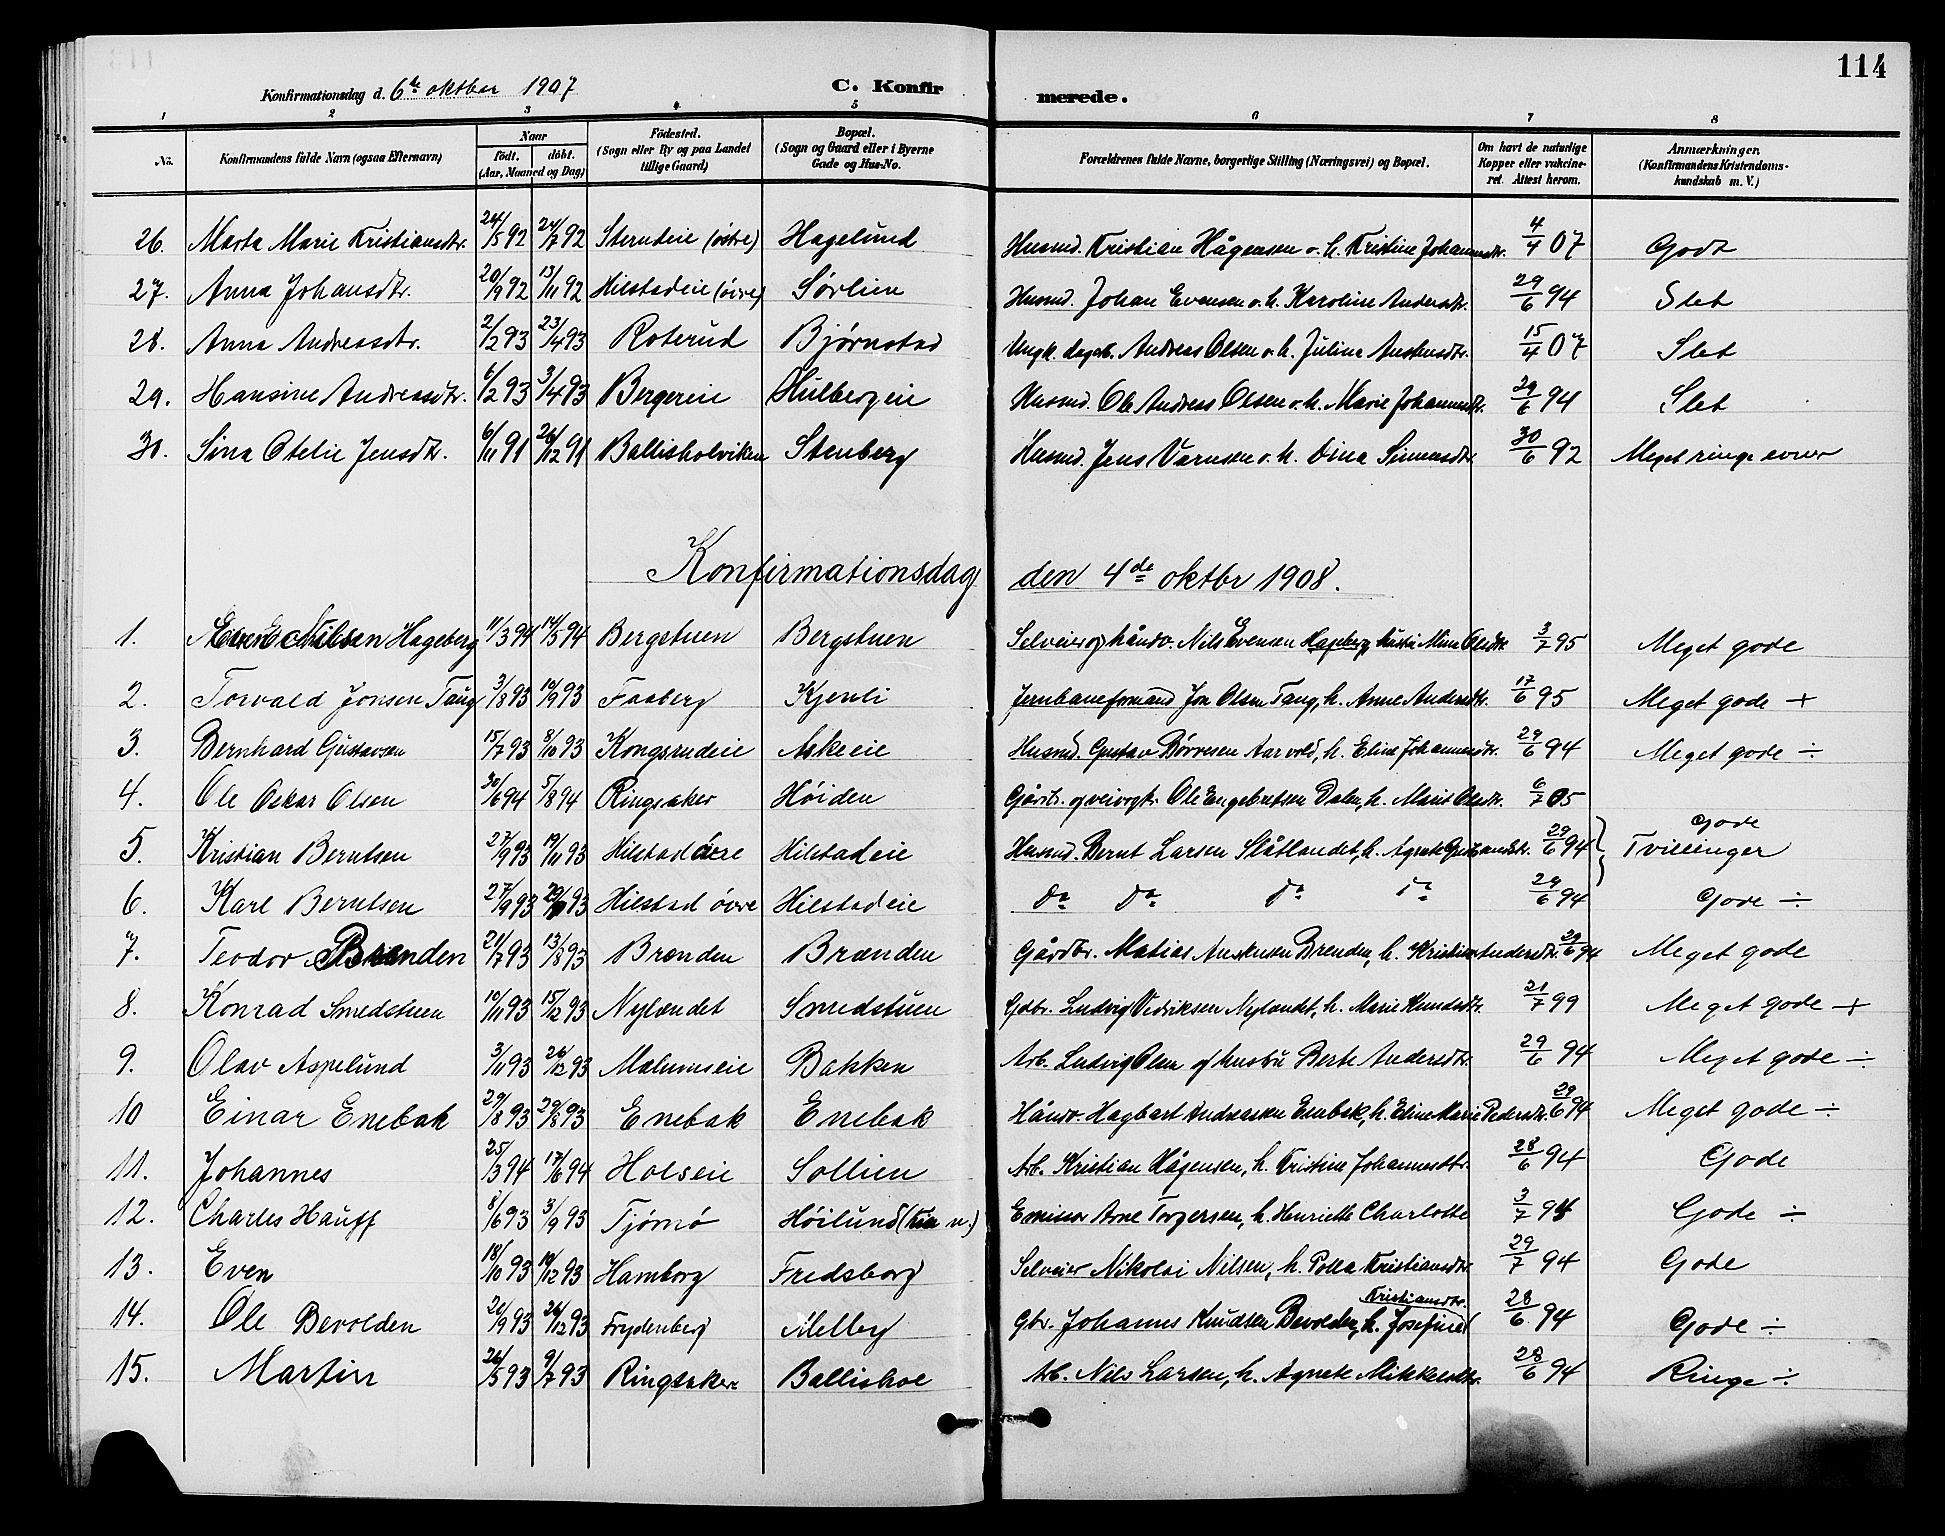 114
Konfirmationsdag d. 6te oktbr 1907 C. Konfirmerede.
1 2 3 4 5 6 7 8
No. Konfirmandens fulde Navn (ogsaa Efternavn) Naar født. døbt. (Aar, Maaned og Dag) Fødested. (Sogn eller By og paa Landet tillige Gaard) Bopæl. (Sogn og Gaard eller i Byerne Gade og Hus-No. Forældrenes fulde Navne, borgerlige Stilling (Næringsvei) og Bopæl. Om havt de naturlige Kopper eller vakcineret. Attest herom. Anmærkninger. (Konfirmandens Kristendomskundskab m. V.)
26. Marta Marie Kristiansdtr. 24/5 92 24/7 92 (østre) Hagelund Husmd. Kristian Hågensen o. h. Kristine Johannesdtr. 4/4 07 Godt
27. Anna Johansdtr. 20/9 92 13/11 92 Hilstadeie (øvre) Sørlien Husmd. Johan Evensen o. h. Karoline Andersdtr. 29/6 94 Slet
28. Anna Andreasdtr. 2/2 93 23/4 93 Roterud Bjørnstad Ungk. dagarb. Andreas Olsen o. h. Juline 15/4 07 Slet
29. Hansine Andreasdtr. 6/2 93 3/4 93 Bergereie Hulbergeie Husmd. Ole Andreas Olsen o. h. Marie Johannesdtr. 29/6 94 Slet
30. Sina Otelie Jensdtr. 6/11 91 26/12 91 Ballisholviken Stenberg Husmd. Jens o. h. Dina Simensdtr 30/6 92 Meget ringe evner
Konfirmationsdag den 4de oktbr 1908.
1. Nilsen Hageberg 11/3 94 14/5 94 Bergstuen Bergstuen Selveier og håndv. Nils Evensen Hageberg, hustru Mina Olsdtr 3/7 95 Meget gode
2. Torvald Jonsen Taug 3/8 93 10/9 93 Faaberg Kjenli Jernbaneformand Jon Olsen Taug, h. Anne Andersdtr. 17/6 95 Meget gode +
3. Bernhard Gustavsen 15/7 93 8/10 93 Kongsrudeie Askeeie Husmd. Gustav Børresen Aarvold, h. Eline Johannesdtr. 29/6 94 Meget gode ÷
4. Ole Oskar Olsen 30/6 94 5/8 94 Ringsaker Høiden Gårdbr. og veivogt. Ole Engebretsen Dalen, h. Marit Olsdtr. 6/7 05
5. Kristian Berntsen 27/9 93 19/11 93 Hilstad øvre Hilstadeie Husmd. Bernt Larsen Slåtlandet, h. Agnete 29/6 94 Gode Tvillinger
6. Karl Berntsen 27/9 93 93 Hilstad øvre Hilstadeie Do Do Do Do 29/6 94 Gode ÷
7. Teodor Brænden 21/7 93 13/8 93 Brænden Brænden Gårdbr. Matias Brenden, h. Kristine Andersdtr. 29/6 94 Meget gode
8. Konrad Smedstuen 10/11 93 15/12 93 Nylændet Smedstuen Gdbr. Ludvig Nylændet, h. Marie Knudsdtr. 21/7 99 Meget gode +
9. Olav Aspelund 3/11 93 26/12 93 Malumseie Bakken Arb. Ludvig Olsen og hustru Berte Andersdtr. 29/6 94 Meget gode ÷
10 Einar Enebak 29/8 93 29/8 93 Enebak Enebak Håndv. Hagbart Andreasen Enebak, h. Eline Marie Pedersdtr. 29/6 94 Meget gode ÷
11. Johannes 25/3 94 17/6 94 Holseie Sollien Arb. Kristian Hågensen, h. Kristine Johannesdtr. 28/6 94 Gode
12. Charles Hauff 8/6 93 3/9 93 Tjømø Høilund Emissær Arne Torgersen, h. Henriette Charlotte 3/7 94 Gode ÷
13. Even 18/10 93 10/12 93 Hamborg Fredsborg Selveier Nikolai Nilsen, h. Kristiansdtr. 29/7 94 Gode
14. Ole Bevolden 20/9 93 26/12 93 Frydenberg Melby Gbr. Johannes Knudsen Bevolden, h. Josefine Kristiansdtr. 28/6 94 Gode ÷
15. Martin 26/5 93 9/7 93 Ringsaker Ballishol Arb. Nils Larsen, h. Agnete Mikkelsdtr. 28/6 94 Ringe ÷